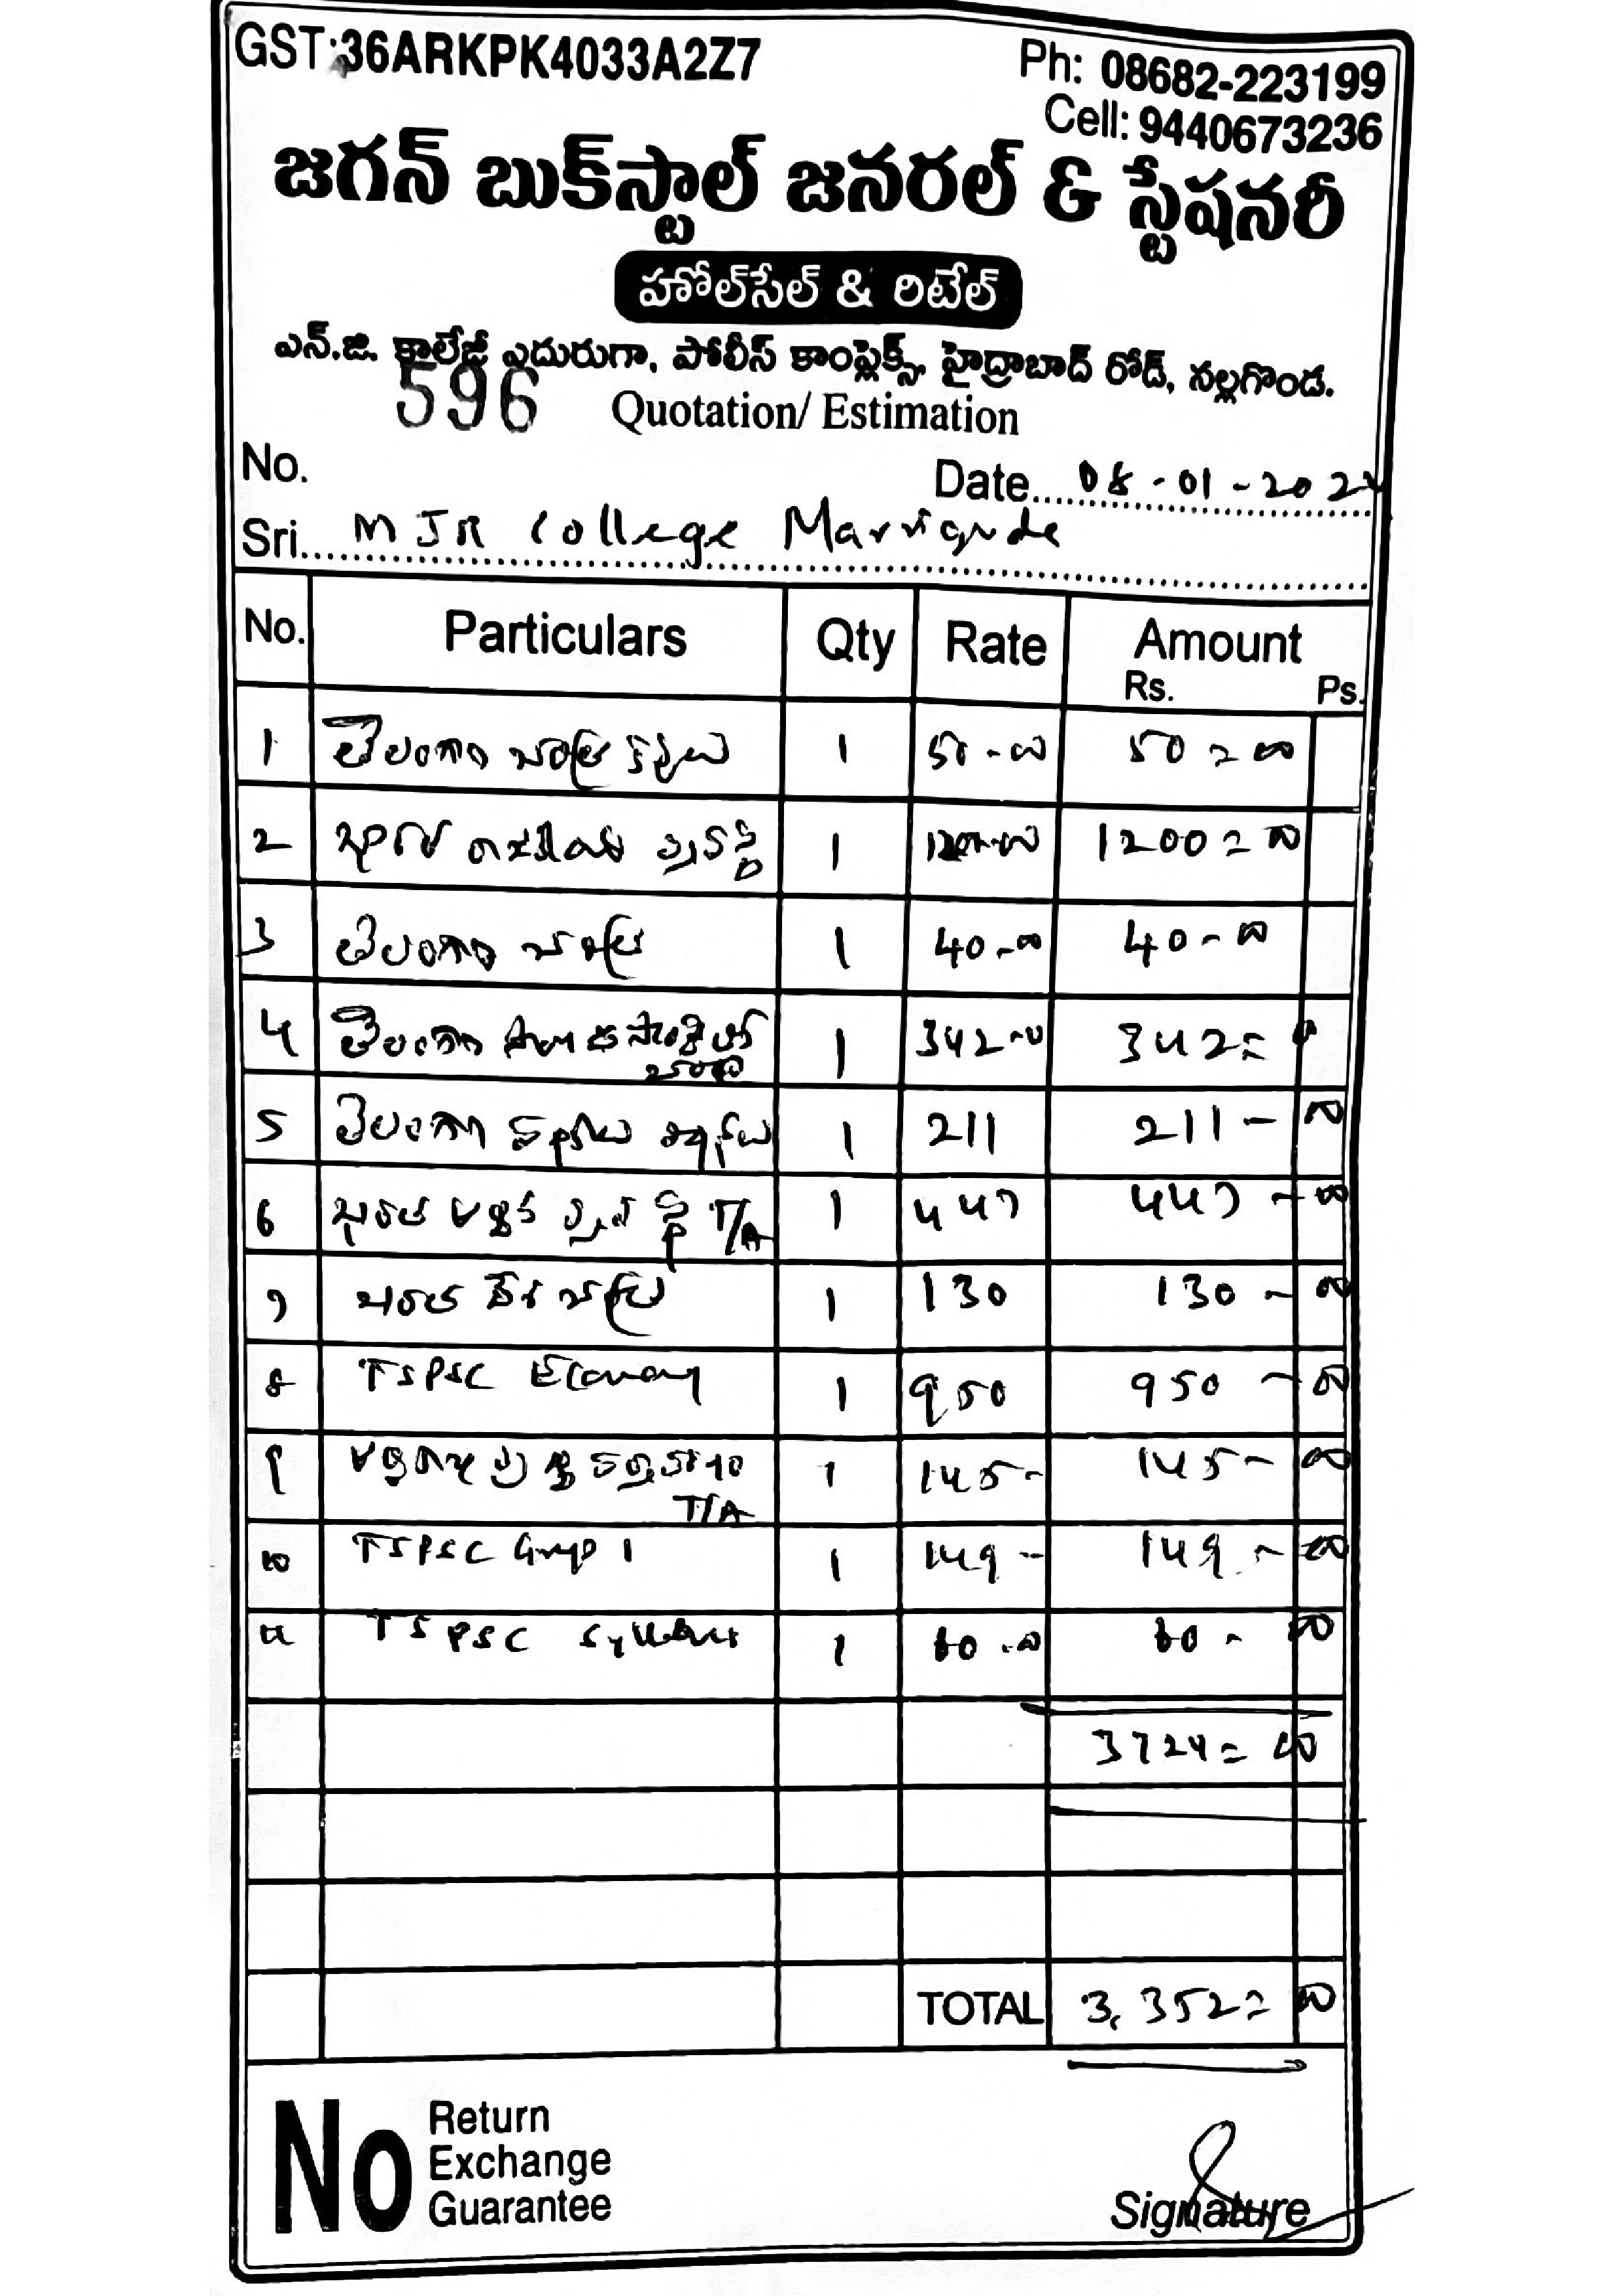 GST:36ARKPK4033A2Z7
Ph: 08682-223199
Cell: 9440673236
జగన్ బుక్‌స్టాల్ జనరల్ & స్టేషనరీ
హోల్‌సేల్ & రిటేల్
ఎన్.జి. కాలేజీ ఎదురుగా, పోలీస్ కాంప్లెక్స్, హైద్రాబాద్ రోడ్, నల్లగొండ.
596 Quotation/ Estimation
No.
Date 08-01-2024
Sri. MJR College Marriguda
No. Particulars Qty Rate Amount
Rs. Ps.
1 తెలంగాణ 1 50-00 50=00
2 1 1200-00 1200=00
3 తెలంగాణ 1 40-00 40-00
4 తెలంగాణ 1 342-00 342=0
5 తెలంగాణ 1 211 211-00
6 భారత T/A 1 447 447-00
7 1 130 130-00
8 TSPSC Economy 1 950 950-00
9 T/A 1 145- 145-00
10 TSPSC Group 1 1 149- 149-00
11 TSPSC Syllabus 1 60-00 60-00
3724=00
TOTAL 3,352=00
No Return
Exchange
Guarantee
Signature